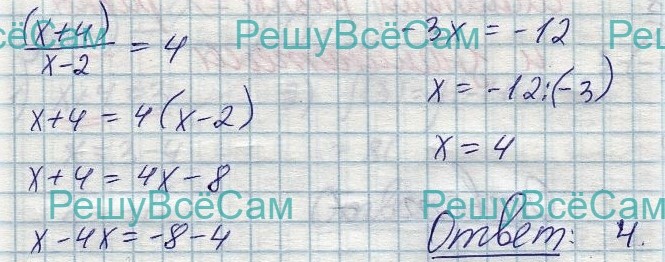 (x+4)/(x-2) = 4
x+4 = 4(x-2)
x+4 = 4x-8
x-4x = -8-4
-3x = -12
x = -12:(-3)
x = 4
Ответ: 4.
РешуВсёСам
РешуВсёСам
РешуВсёСам
РешуВсёСам
РешуВсёСам